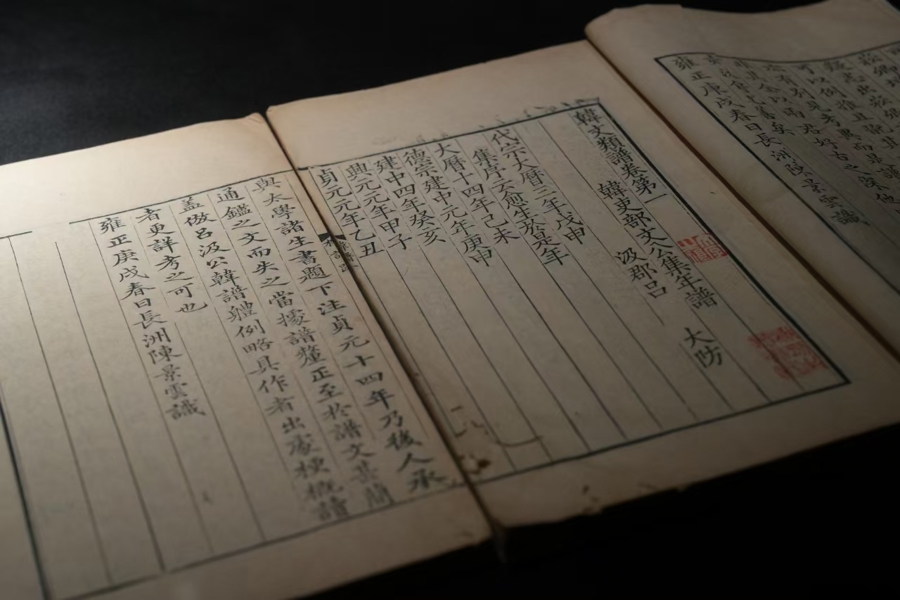 雍正庚戌春日長洲陳景雲識
韓文類譜卷第一
韓吏部文公集年譜
汲郡呂 大防
代宗大曆三年戊申
集序云愈生於是年
大曆十四年己未
德宗建中元年庚申
建中四年癸亥
興元元年甲子
貞元元年乙丑
與大學諸生書題下注貞元十四年乃後人承
通鑑之文而失之當據譜釐正至於譜文甚簡
蓋倣呂汲公韓譜體例略具作者出處梗概讀
者更詳考之可也
雍正庚戌春日長洲陳景雲識